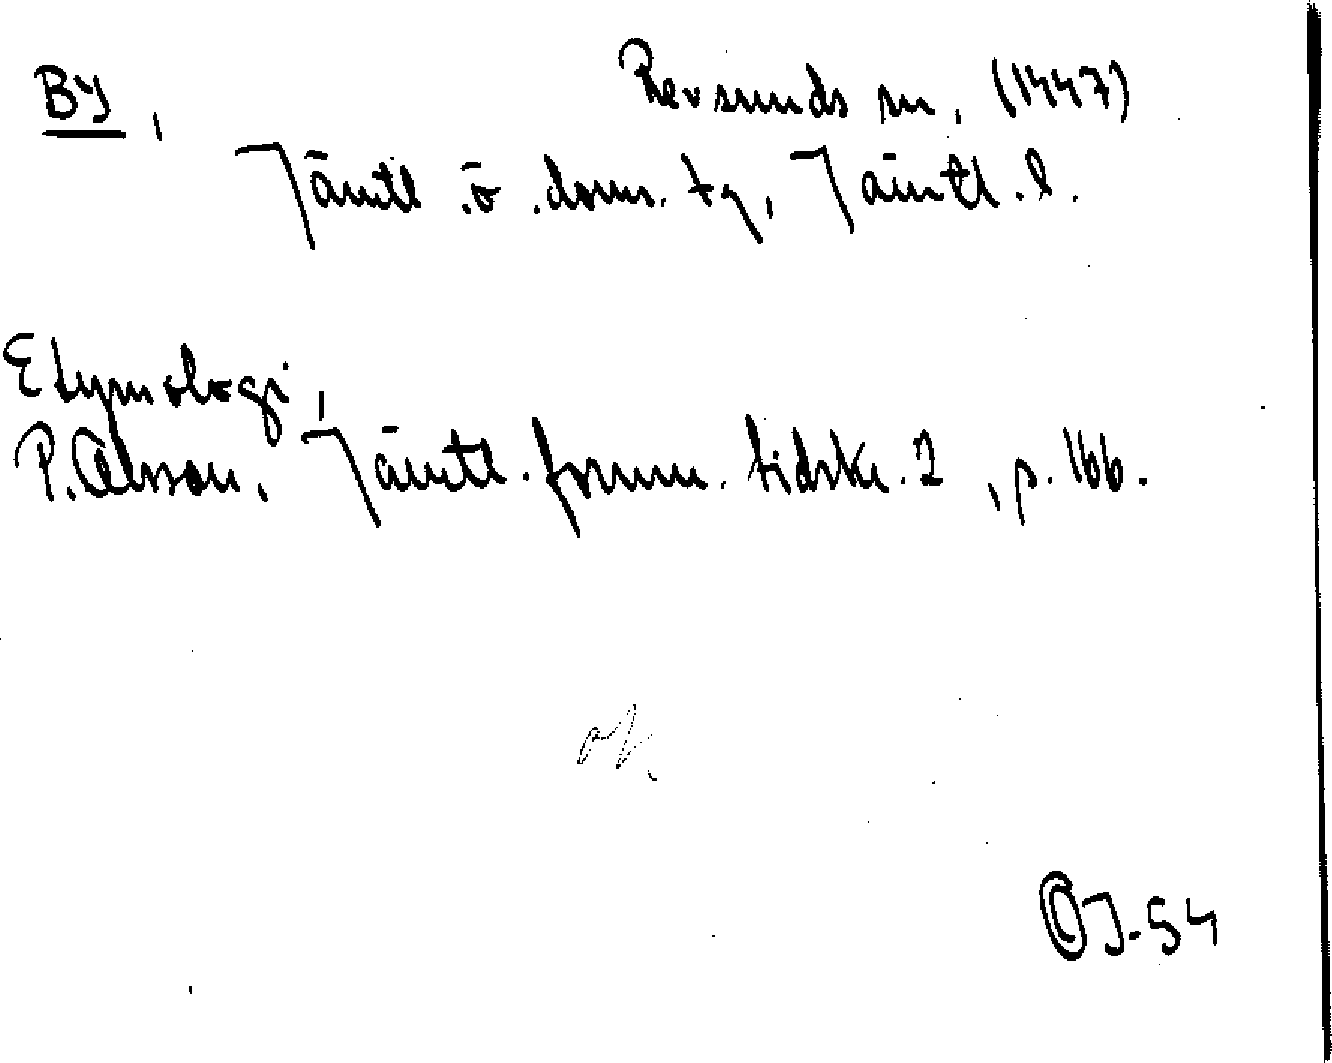 BY,
Revsunds sn, (1447)
Jämtl. ö. doms. tg, Jämtl. l.
Etymologi,
P. Olsson, Jämtl. fornm. tidskr. 2, p. 166.
OJ-54